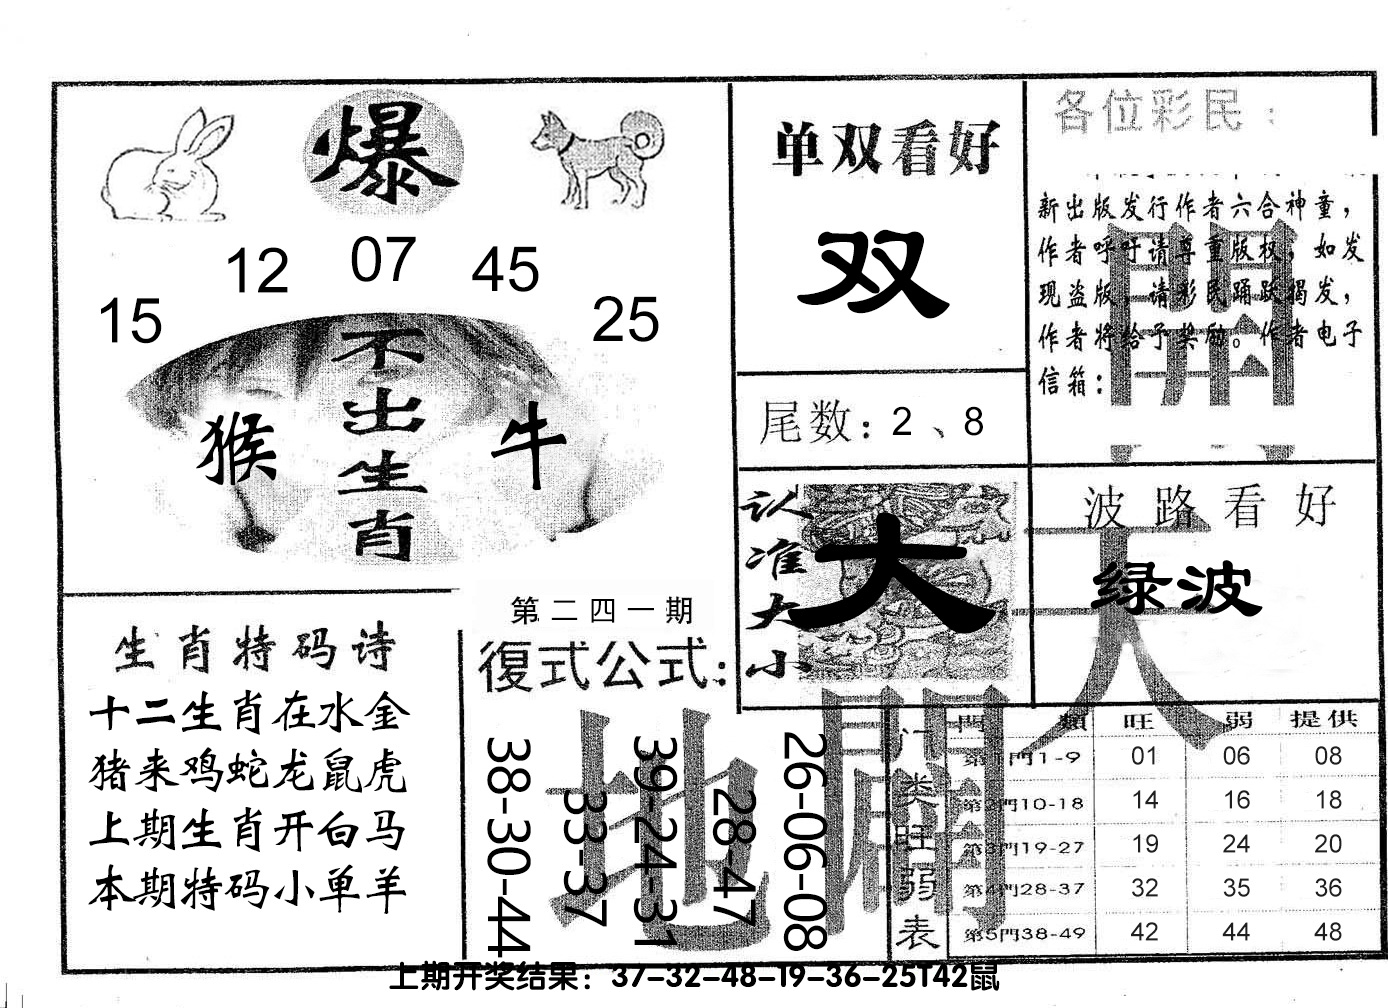 爆
12 07 45
15 25
不出生肖
猴 牛
单双看好
双
尾数：2、8
各位彩民：
新出版发行作者六合神童，
作者呼吁请尊重版权，如发
现盗版，请彩民踊跃揭发，
作者将给予奖励。作者电子
信箱：
開
认准大小
大
波路看好
绿波
天
生肖特码诗
十二生肖在水金
猪来鸡蛇龙鼠虎
上期生肖开白马
本期特码小单羊
第二四一期
復式公式：
38-30-44
33-37
39-24-31
28-47
26-06-08
地
闢
门类旺弱表
門類 旺 弱 提供
第1門1-9 01 06 08
第2門10-18 14 16 18
第3門19-27 19 24 20
第4門28-37 32 35 36
第5門38-49 42 44 48
上期开奖结果：37-32-48-19-36-25T42鼠